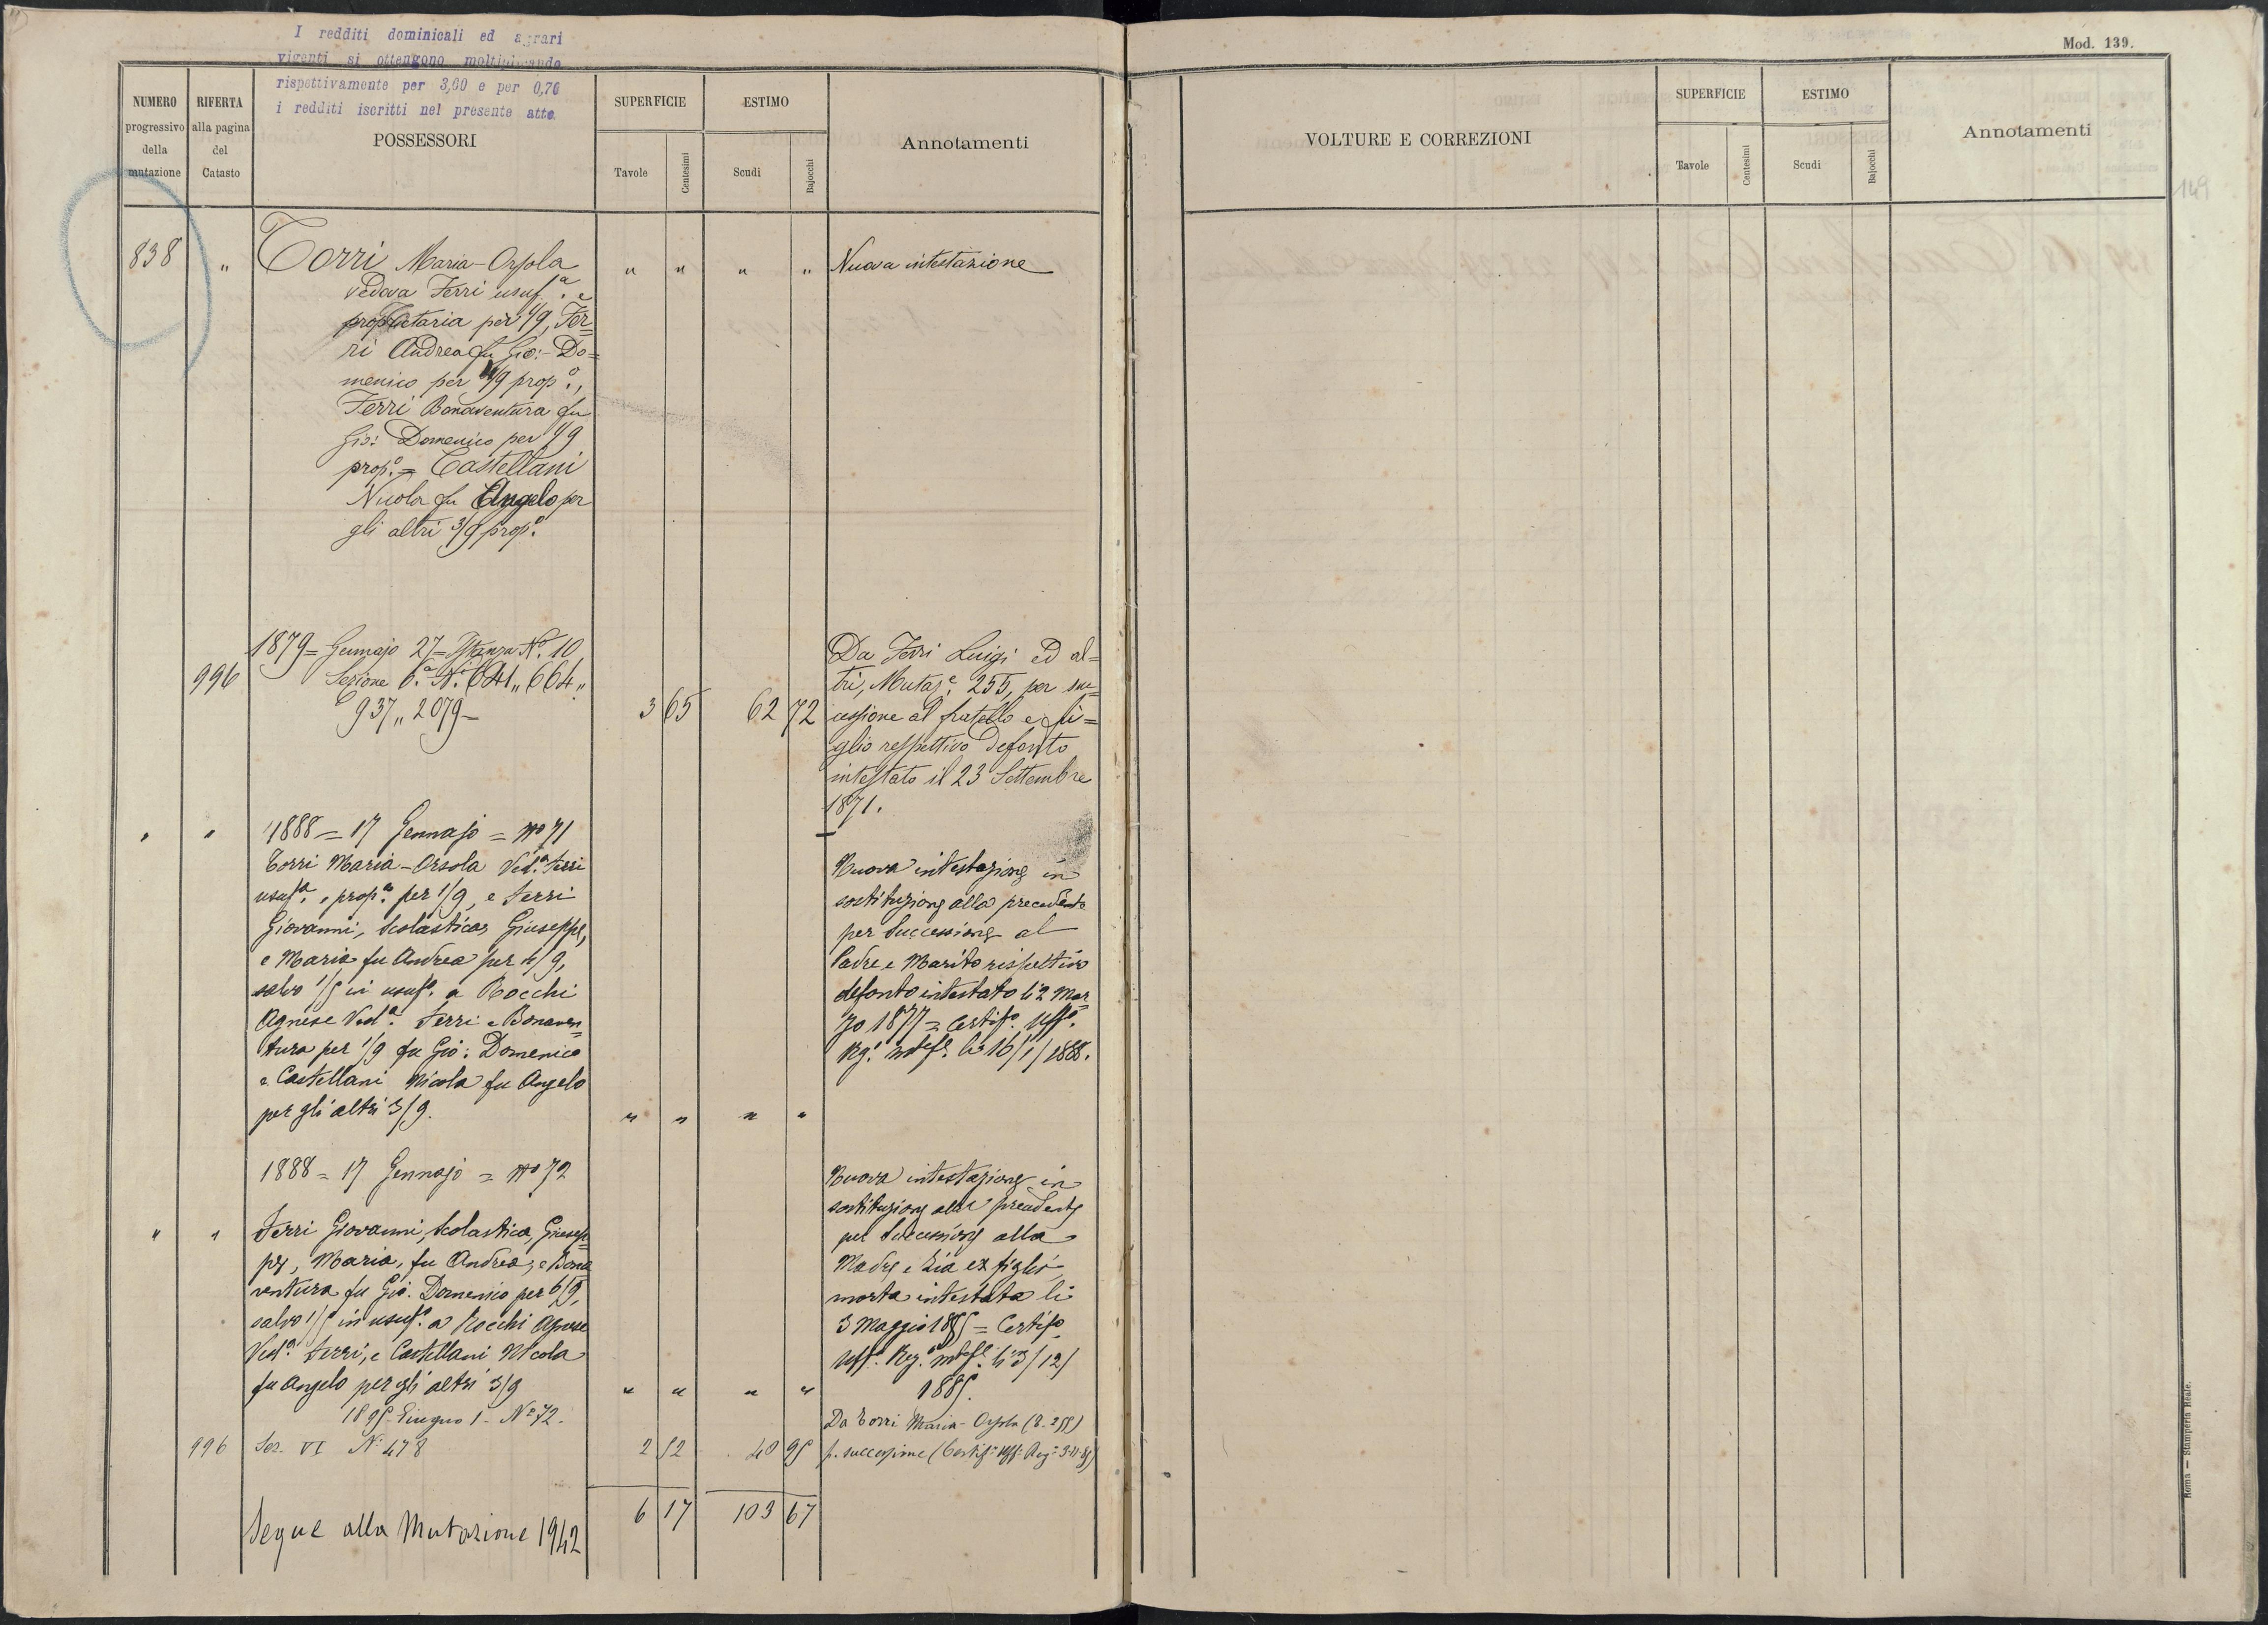 I redditi dominicali ed agrari
vigenti si ottengono moltiplicando
rispettivamente per 3,60 e per 0,70
i redditi iscritti nel presente atto.
Mod. 139.
NUMERO progressivo della mutazione
RIFERTA alla pagina del Catasto
POSSESSORI
SUPERFICIE
Tavole
Centesimi
ESTIMO
Scudi
Bajocchi
Annotamenti
VOLTURE E CORREZIONI
SUPERFICIE
Tavole
Centesimi
ESTIMO
Scudi
Bajocchi
Annotamenti
149
838 " Torri Maria-Orsola " " " " Nuova intestazione
vedova Ferri usuf.a e
proprietaria per 1/9, Fer=
ri Andrea fu Gio:-Do=
menico per 4/9 prop.o,
Ferri Bonaventura fu
Gio: Domenico per 1/9
prop.o = Castellani
Nicola fu Angelo per
gli altri 3/9 prop.o
1879 = Gennajo 27 = Istanza No. 10
996 Sezione 6.a N.i 641 „ 664 „
937 „ 2079 – 3 65 62 72
Da Ferri Luigi ed al=
tri, Mutaz.e 255, per suc=
cessione al fratello e fi=
glio respettivo defonto
intestato il 23 Settembre
1871.
" " 1888 = 17 Gennajo = No 71
Torri Maria-Orsola Ved.a Ferri
usuf.a e prop.a per 1/9, e Ferri
Giovanni, Scolastica, Giuseppe,
e Maria fu Andrea per 4/9,
salvo 1/5 in usuf.o a Rocchi
Agnese Ved.a Ferri e Bonaven=
tura per 1/9 fu Gio: Domenico
e Castellani Nicola fu Angelo
per gli altri 3/9. " " " "
Nuova intestazione in
sostituzione alla precedente
per successione al
Padre e Marito rispettivo
defonto intestato li 2 Mar=
zo 1877 = Certif.o Uff.o
Reg.o li 16/1/1888.
1888 = 17 Gennajo = No 72
" " Ferri Giovanni, Scolastica, Giusep=
pe, Maria, fu Andrea, e Bona=
ventura fu Gio. Domenico per 6/9,
salvo 1/5 in usuf.o a Rocchi Agnese
Ved.a Ferri, e Castellani Nicola
fu Angelo per gli altri 3/9 " " " "
Nuova intestazione in
sostituzione alla precedente
per successione alla
Madre e Zia ex figlio
morta intestata li
3 Maggio 1885 = Certifo
Uff.o Reg.o li 3/12/
1885.
1895 Giugno 1 - No 72.
996 Sez. VI N. 478 2 52 40 95
Da Torri Maria-Orsola
p. successione
6 17 103 67
Segue alla Mutazione 1942
Roma – Stamperia Reale.